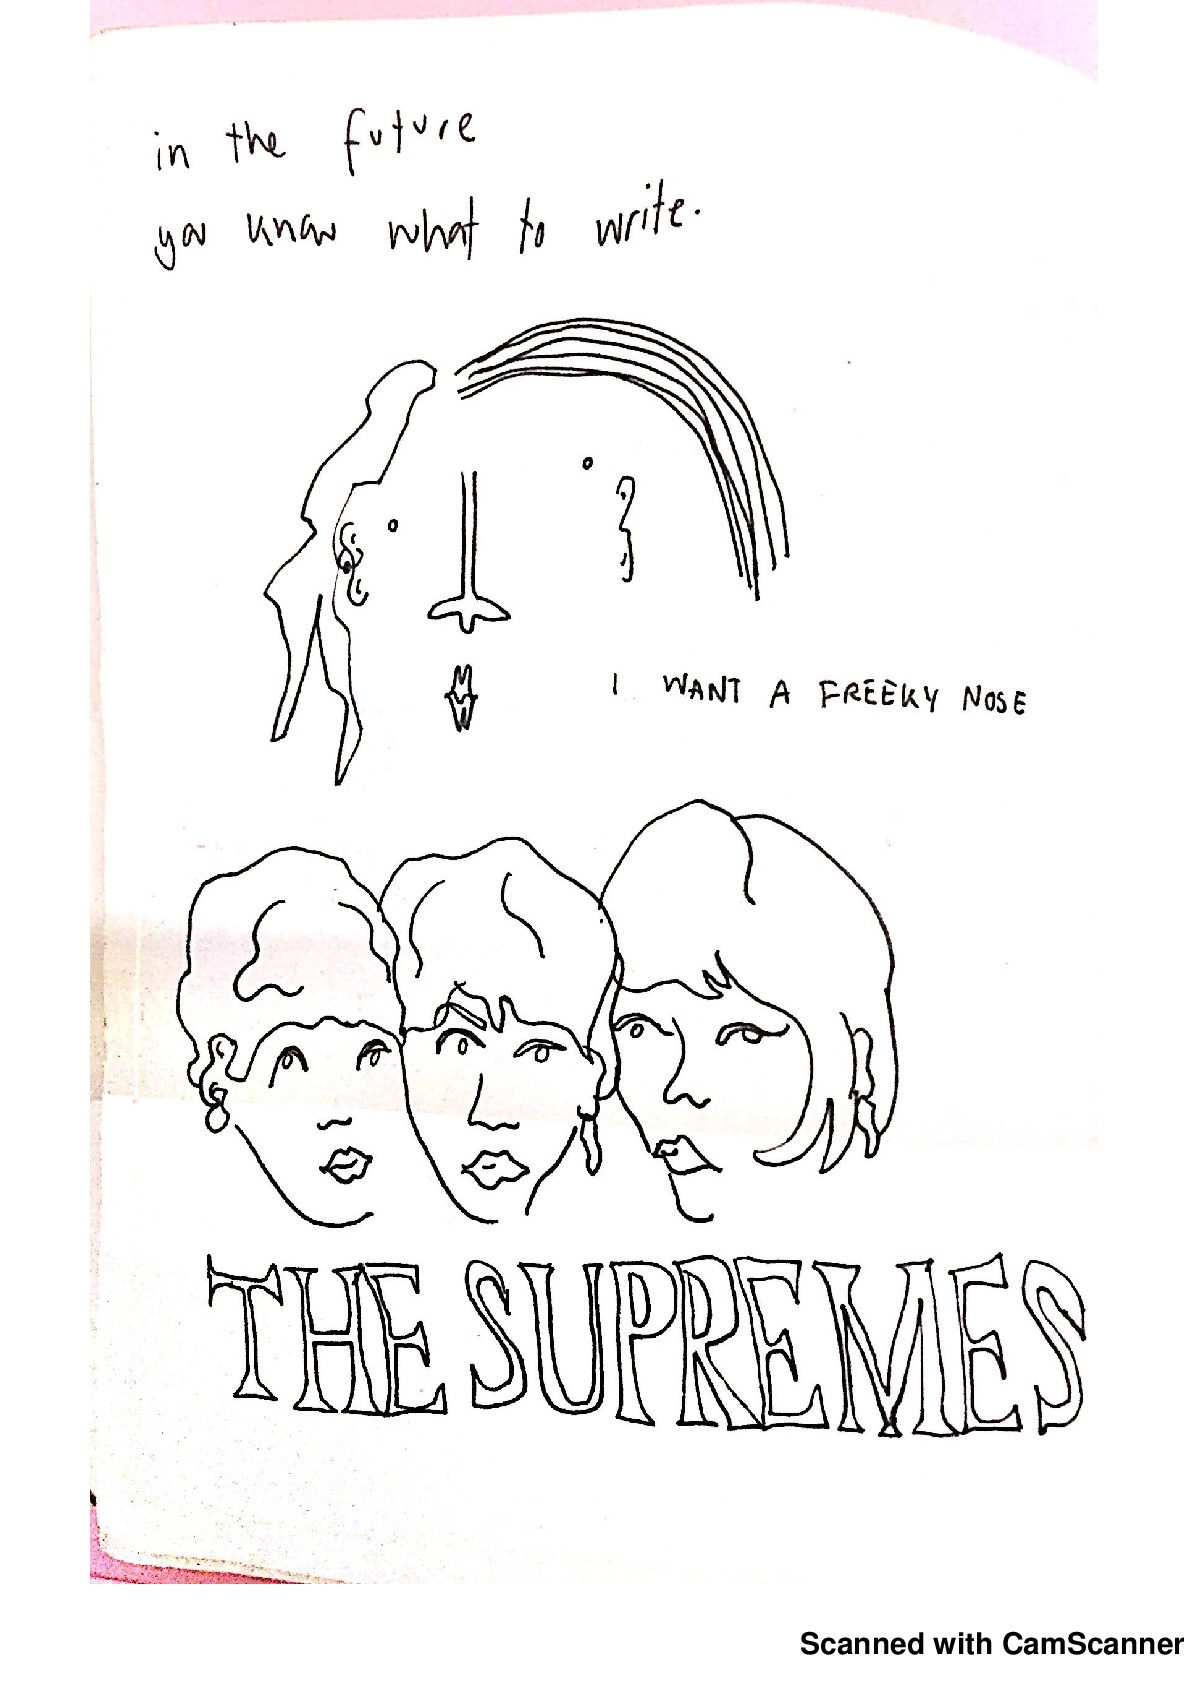 in the future
you know what to write.
I WANT A FREEKY NOSE
THE SUPREMES
Scanned with CamScanner